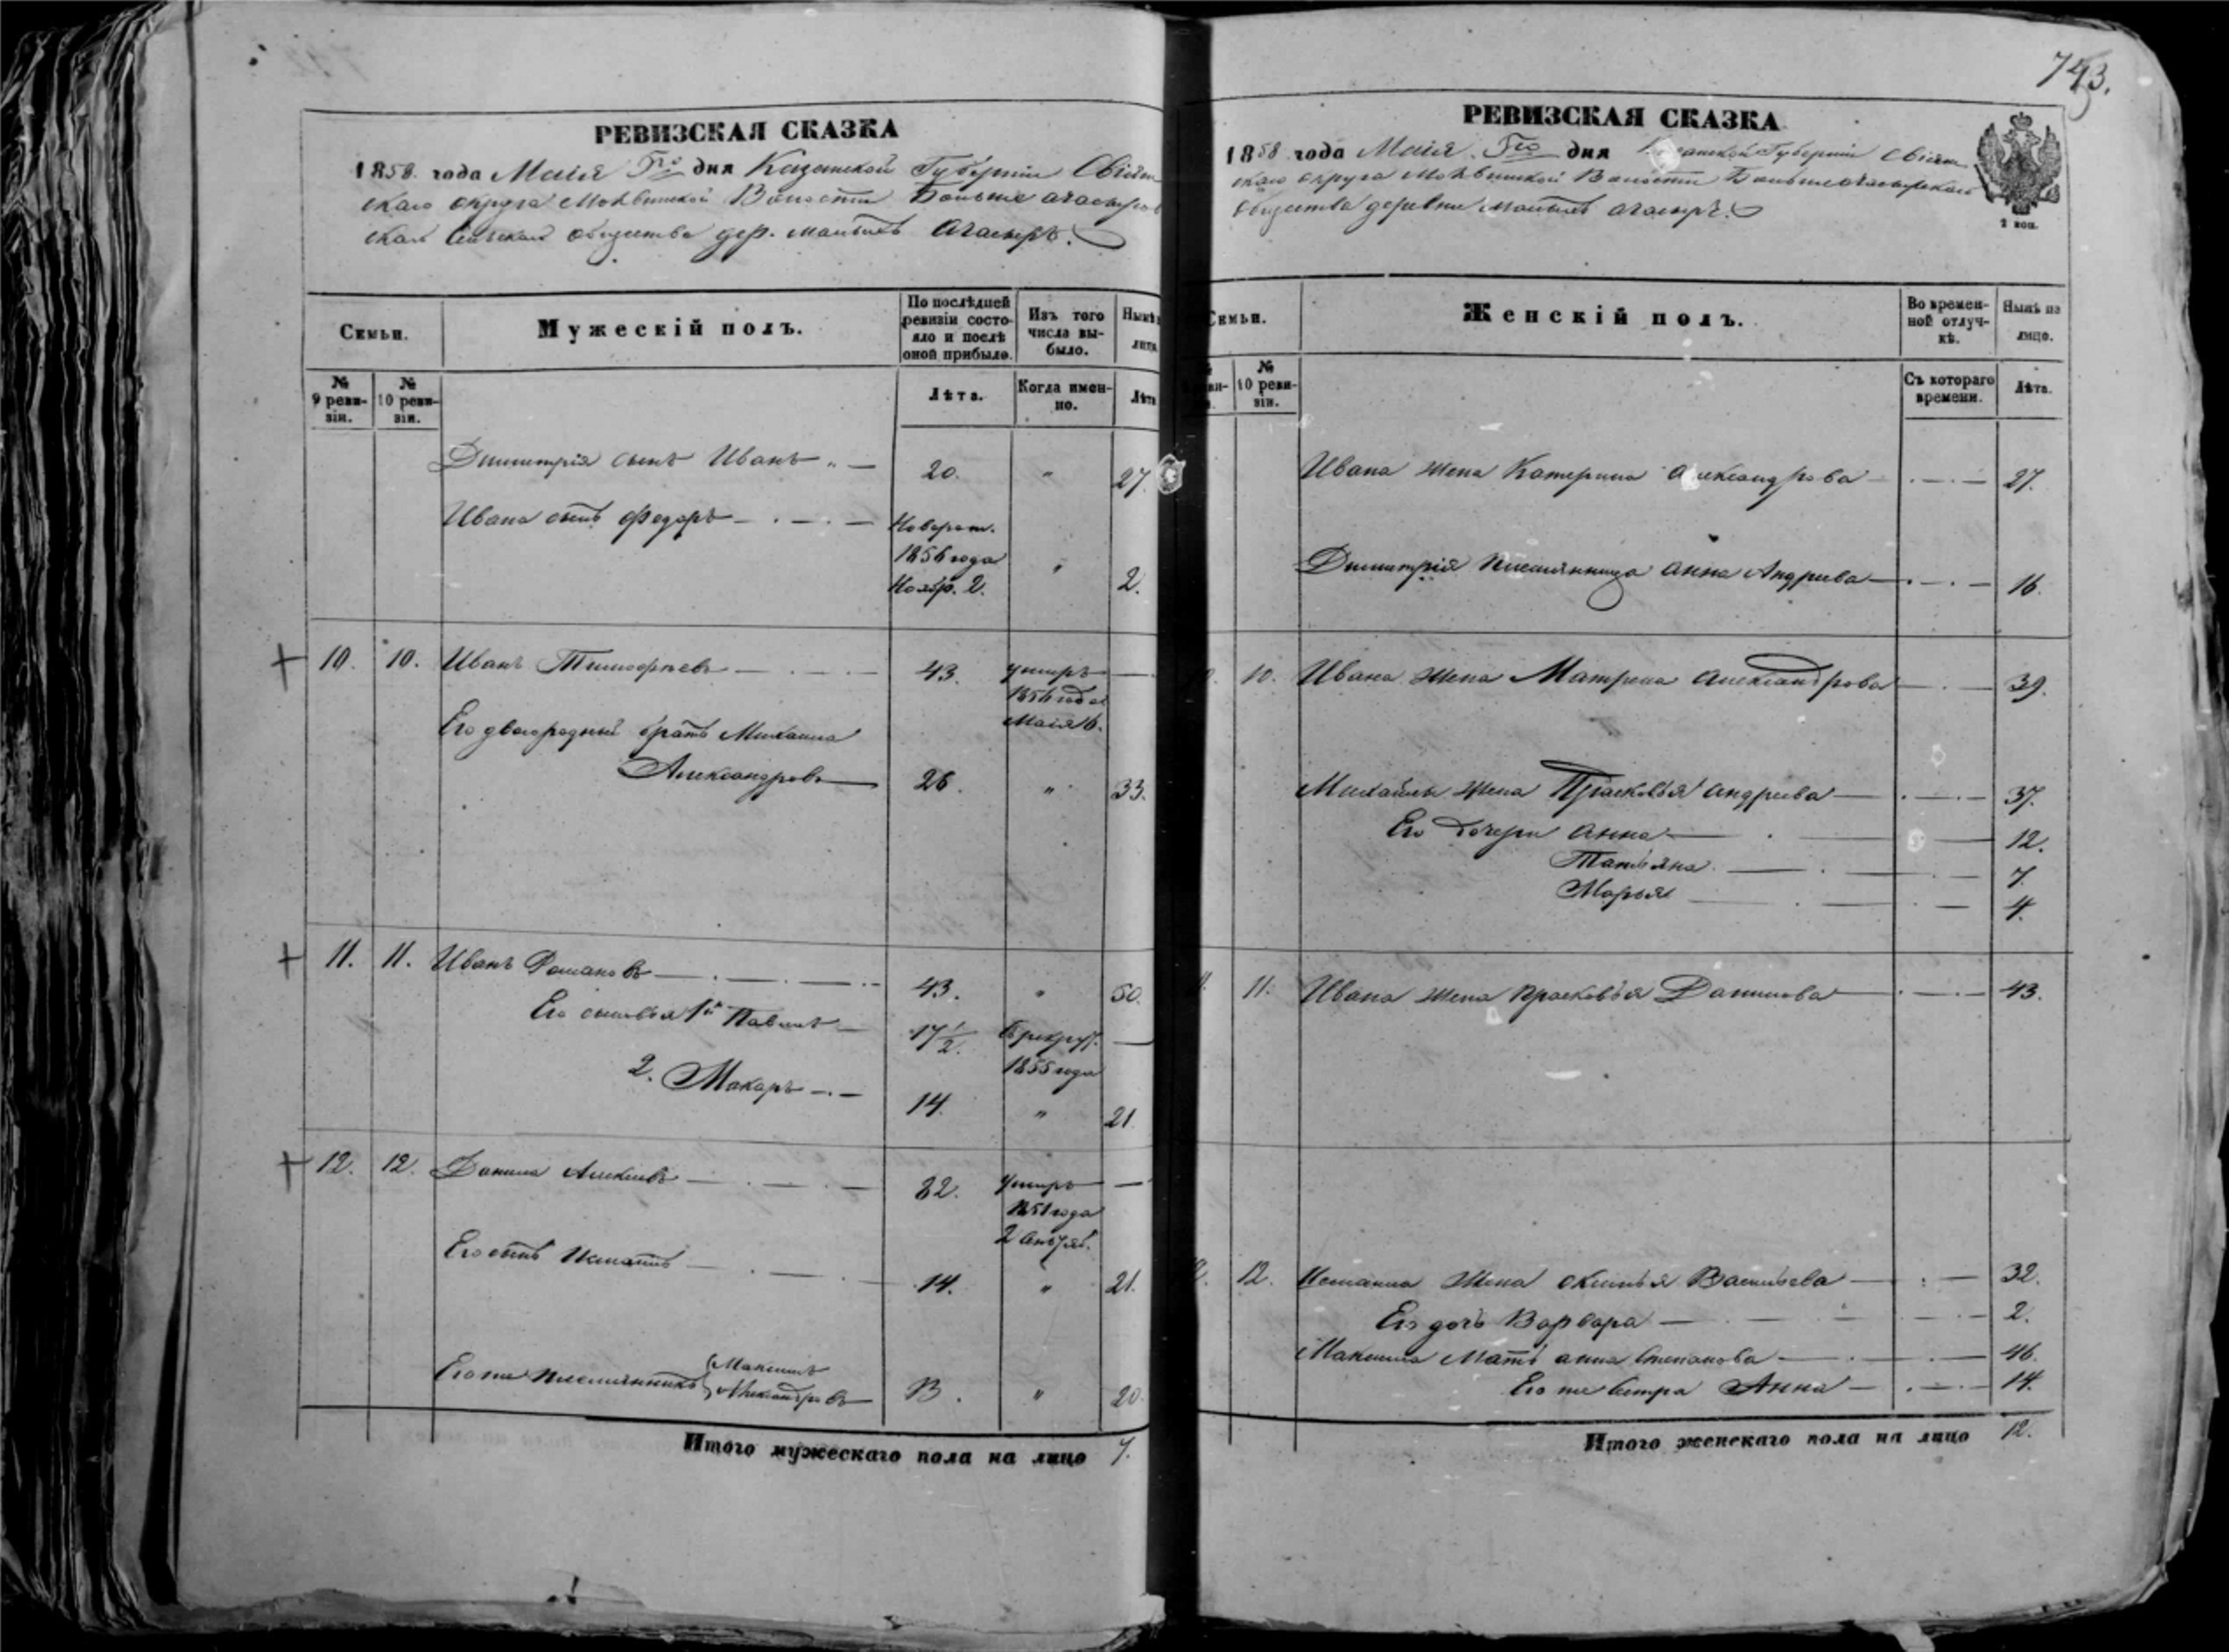 743.
РЕВИЗСКАЯ СКАЗКА
1858. года Маія дня Казанской Губерніи Свіяж
скаго округа Волости Больше
скаго общества дер. Малыхъ
Семьи.
Мужескій полъ.
По послѣдней ревизіи состояло и послѣ оной прибыло.
Изъ того числа выбыло.
Нынѣ
лица
№ 9 ревизіи.
№ 10 ревизіи.
Лѣта.
Когда именно.
Лѣта
Димитрія сынъ Иванъ 20. " 27.
Ивана сынъ ФедоръНоворож.
1856 года "
Нояб. 2. 2.
10. 10. Иванъ Тимофеевъ 43. умеръ
1856 года
Маія 6.
Его двоюродный братъ Михаила
Александровъ 26. " 33.
11. 11. Иванъ Романовъ 43. " 50.
Его сыновья 1й Павелъ 17 1/2. Врекрут.
1855 года
2. Макаръ 14. " 21.
12. 12. Данила Алексѣевъ 82. умеръ
1851 года
2
Его сынъ 14. " 21.
Его же племянникъ Максимъ
Александровъ " 20.
Итого мужескаго пола на лицо 7.
РЕВИЗСКАЯ СКАЗКА
1858 года Маія дня Казанской Губерніи Свіяж
скаго округа Волости
общества деревни Малыхъ
2 коп.
Семьи.
Женскій полъ.
Во временной отлучкѣ.
Нынѣ на лицо.
№ 10 ревизіи.
Съ котораго времени.
Лѣта.
Ивана жена Катерина Александрова 27.
Димитрія племянница Анна Андреева 16.
10. Ивана жена Матрена Александрова 39.
Михайлы жена Прасковья Андреева 37.
Его дочери Анна 12.
Татьяна 7.
Марья 4.
11. Ивана жена Прасковья Данилова 43.
12. жена Васильева 32.
Его дочь Варвара 2.
Максима мать Анна Степанова 46.
Его же сестра Анна 14.
Итого женскаго пола на лицо 12.